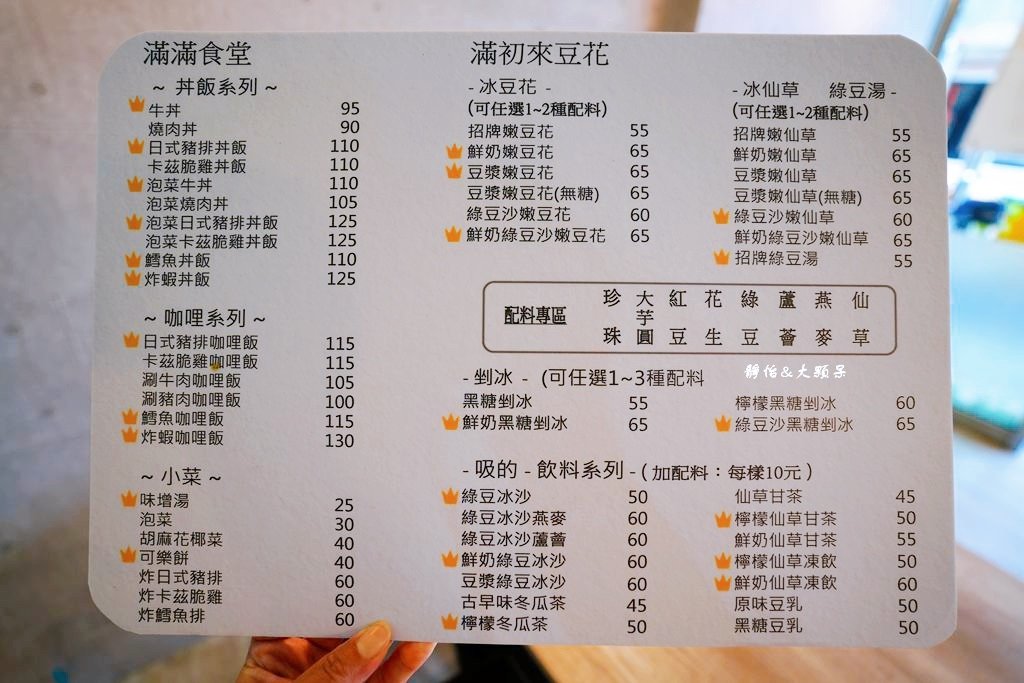 滿滿食堂
~ 丼飯系列 ~
牛丼 95
燒肉丼 90
日式豬排丼飯 110
卡茲脆雞丼飯 110
泡菜牛丼 110
泡菜燒肉丼 105
泡菜日式豬排丼飯 125
泡菜卡茲脆雞丼飯 125
鱈魚丼飯 110
炸蝦丼飯 125
~ 咖哩系列 ~
日式豬排咖哩飯 115
卡茲脆雞咖哩飯 115
涮牛肉咖哩飯 105
涮豬肉咖哩飯 100
鱈魚咖哩飯 115
炸蝦咖哩飯 130
~ 小菜 ~
味增湯 25
泡菜 30
胡麻花椰菜 40
可樂餅 40
炸日式豬排 60
炸卡茲脆雞 60
炸鱈魚排 60
滿初來豆花
- 冰豆花 -
(可任選1~2種配料)
招牌嫩豆花 55
鮮奶嫩豆花 65
豆漿嫩豆花 65
豆漿嫩豆花(無糖) 65
綠豆沙嫩豆花 60
鮮奶綠豆沙嫩豆花 65
- 冰仙草 綠豆湯 -
(可任選1~2種配料)
招牌嫩仙草 55
鮮奶嫩仙草 65
豆漿嫩仙草 65
豆漿嫩仙草(無糖) 65
綠豆沙嫩仙草 60
鮮奶綠豆沙嫩仙草 65
招牌綠豆湯 55
配料專區
珍珠 大芋圓 紅豆 花生 綠豆 蘆薈 燕麥 仙草
靜怡&大顆呆
- 剉冰 - (可任選1~3種配料
黑糖剉冰 55
鮮奶黑糖剉冰 65
檸檬黑糖剉冰 60
綠豆沙黑糖剉冰 65
- 吸的 - 飲料系列 - ( 加配料：每樣10元 )
綠豆冰沙 50
綠豆冰沙燕麥 60
綠豆冰沙蘆薈 60
鮮奶綠豆冰沙 60
豆漿綠豆冰沙 60
古早味冬瓜茶 45
檸檬冬瓜茶 50
仙草甘茶 45
檸檬仙草甘茶 50
鮮奶仙草甘茶 55
檸檬仙草凍飲 50
鮮奶仙草凍飲 60
原味豆乳 50
黑糖豆乳 50